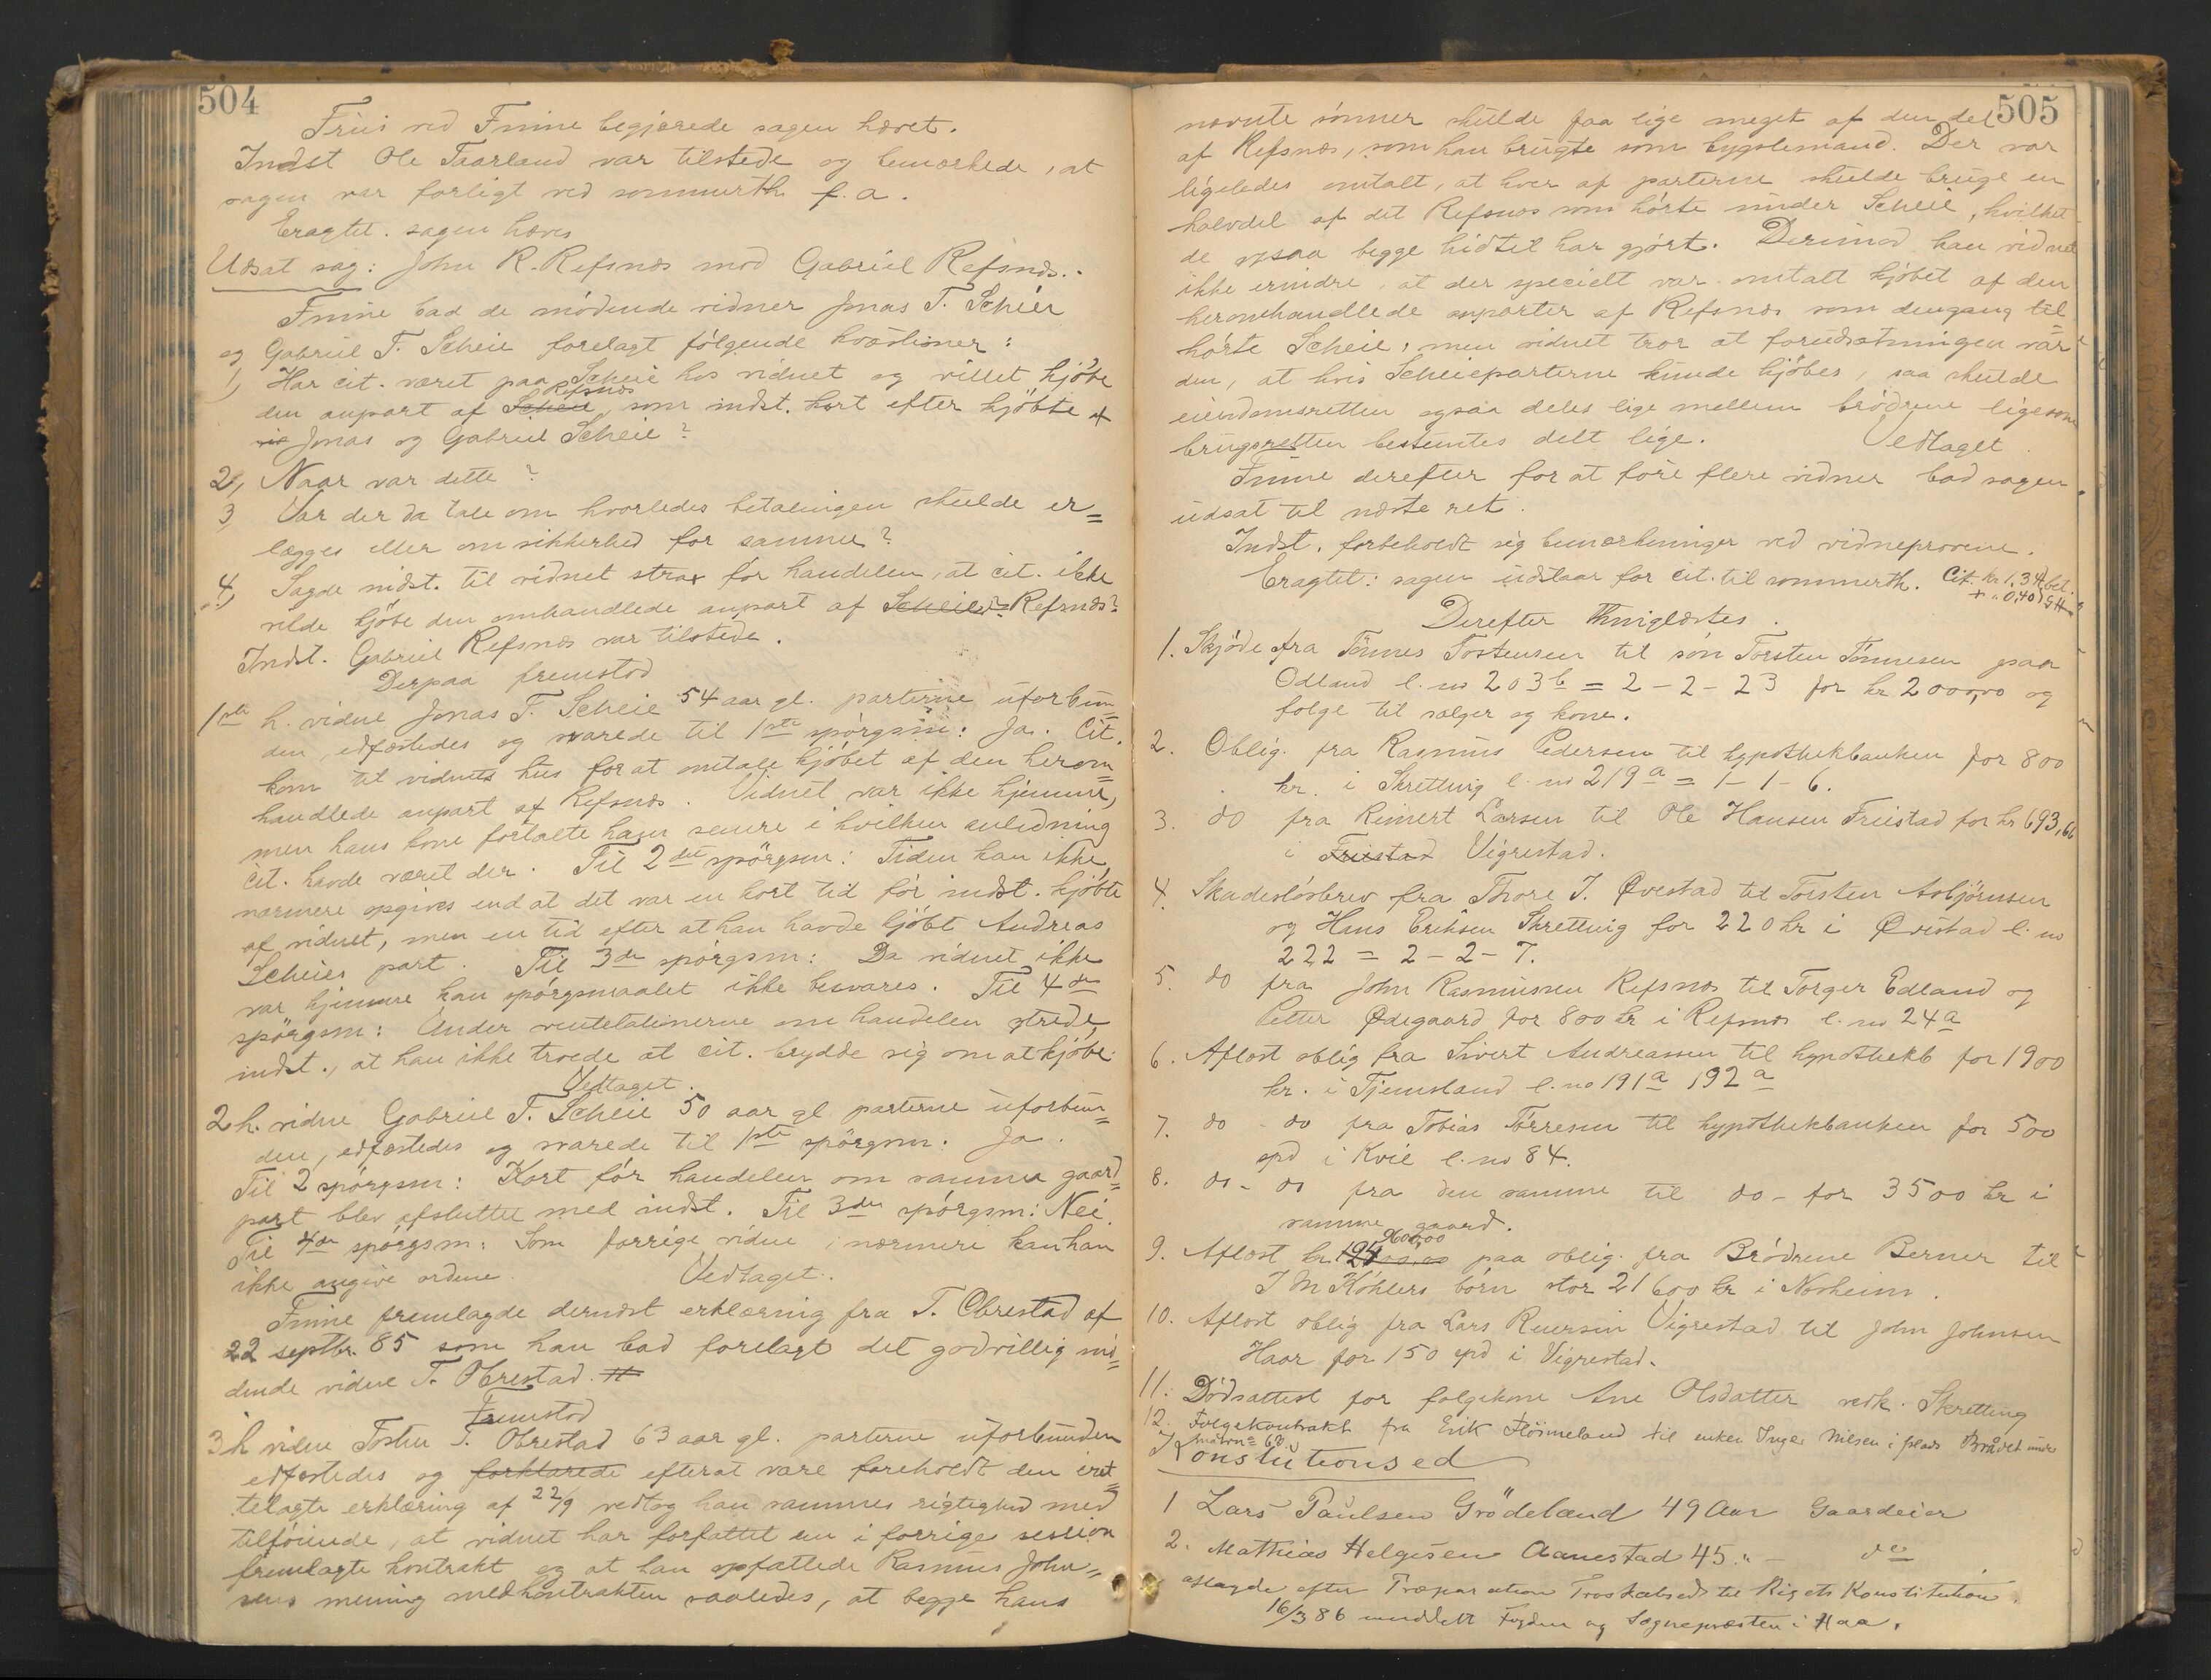 504
Friis ved Fnine begjærede sagen hævet.
Indst Ole Taarland var tilstede og bemærkede, at
sagen var forligt ved sommerth f. a.
Eragtet. sagen hæves
Udsat sag: John R. Refsnæs mod Gabriel Refsnæs.
Fnine bad de mödende vidner Jonas T. Scheie
og Gabriel T. Scheie forelagt fölgende kvæstioner:
1, Har cit. været paa Scheie hos vidnet og villet kjöbe
den anpart af Scheie Refsnæs som indst. kort efter kjöbte af
Jonas og Gabriel Scheie?
2, Naar var dette?
3, Var der da tale om hvorledes betalingen skulde er=
lægges eller om sikkerhed for samme?
4, Sagde indst. til vidnet strax för handelen, at cit. ikke
vilde kjöbe den omhandlede anpart af Scheie? Refsnæs?
Indst. Gabriel Refsnæs var tilstede.
Derpaa fremstod
1ste h. vidne Jonas T. Scheie 54 aar gl. parterne uforbun=
den, edfæstedes og svarede til 1ste spörgsm: Ja. Cit.
kom til vidnets hus for at omtale kjöbet af den herom=
handlede anpart af Refsnæs. Vidnet var ikke hjemme,
men hans kone fortalte ham senere i hvilken anledning
cit. havde været der. Til 2det spörgsm: Tiden kan ikke
nærmere opgives end at det var en kort tid för indst. kjöbte
af vidnet, men en tid efter at han havde kjöbt Andreas
Scheies part. Til 3de spörgsm: Da vidnet ikke
var hjemme kan spörgsmaalet ikke besvares. Til 4de
spörgsm: Under ventelationerne om handelen ytrede
indst., at han ikke troede at cit. brydde sig om at kjöbe.
Vedtaget.
2 h. vidne Gabriel T. Scheie 50 aar gl parterne uforbun=
den, edfæstedes og svarede til 1ste spörgsm. Ja.
Til 2 spörgsm: Kort för handelen om samme gaard=
part blev afsluttet med indst. Til 3de spörgsm: Nei.
Til 4de spörgsm: Som forrige vidne, nærmere kan han
ikke angive ordene. Vedtaget.
Fnine fremlagde dernæst erklæring fra T. Obrestad af
22 septbr. 85 som han bad forelagt det godvillig mö=
dende vidne T. Obrestad.
Fremstod
3 h vidne Tosten T. Obrestad 63 aar gl. parterne uforbunden
edfæstedes og forklarede efterat være foreholdt den iret=
telagte erklæring af 22/9 vedtog han sammes rigtighed med
tilföiende, at vidnet har forfattet en i forrige session
fremlagte kontrakt og at han opfattede Rasmus John=
sens mening med kontrakten saaledes, at begge hans
505
nævnte sönner skulde faa lige meget af den del
af Refsnæs, som han brugte som bygslemand. Der var
ligeledes omtalt, at hver af parterne skulde bruge en
halvdel af det Refsnæs som hörte under Scheie, hvilket
de ogsaa begge hidtil har gjört. Derimod kan vidnet
ikke erindre, at der specielt var omtalt kjöbet af den
heromhandlede anparter af Refsnæs som dengang til
hörte Scheie, men vidnet tror at forudsætningen var
den, at hvis Scheieparterne kunde kjöbes, saa skulde
eiendomsretten ogsaa deles lige mellem brödrene ligesom
brugsretten bestemtes delt lige. Vedtaget.
Fnine derefter for at före flere vidner bad sagen
udsat til næste ret.
Indst. forbeholdt sig bemærkninger ved vidneprovene.
Eragtet: sagen udstaar for cit. til sommerth. Cit. kr 1,34 bet.
+ " 0,40
Derefter thinglæstes.
1. Skjöde fra Tönnes Tostensen til sön Torsten Tönnesen paa
Odland l. no 203b = 2-2-23 for kr 2000,00 og
folge til sælger og kone.
2. Oblig. fra Rasmus Pedersen til hypothekbanken for 800
kr. i Skretting l. no 219a = 1-1-6.
3. do fra Reinert Larsen til Ole Hansen Friestad for kr 693,66
i Friestad Vigrestad.
4. Skadeslösbrev fra Thore J. Øvestad til Torsten Asbjörnsen
og Hans Eriksen Skretting for 220 kr i Øvestad l. no
222 = 2-2-7.
5. do fra John Rasmussen Refsnæs til Torger Edland og
Petter Ødegaard for 800 kr i Refsnæs l. no 24a
6. Aflöst oblig fra Sivert Andreassen til hypothekb for 1900
kr. i Tjemsland l. no 191a 192a
7. do - do fra Tobias Törresen til hypothekbanken for 500
spd i Kvie l. no 84.
8. do - do fra den samme til do - for 3500 kr i
samme gaard.
9. Aflöst kr. 19600,00 paa oblig. fra Brödrene Berner til
J M Köhlers börn stor 21600 kr i Nærheim.
10. Aflöst oblig fra Lars Reiersen Vigrestad til John Johnsen
Haar for 150 spd i Vigrestad.
11. Dödsattest for folgekone Ane Olsdatter vedk. Skretting
12. Folgekontrakt fra Erik Höimeland til enken Inger Nilsen i plads Brådet under
Konstitutionsed
1 Lars Paulsen Grödeland 49 Aar Gaardeier
2. Mathias Helgesen Aanestad 45 " - do
aflagde efter Præparation Troskabsed til Rigets Konstitution.
16/3 86 meddelt Fogden og Sognepræsten i Haa.